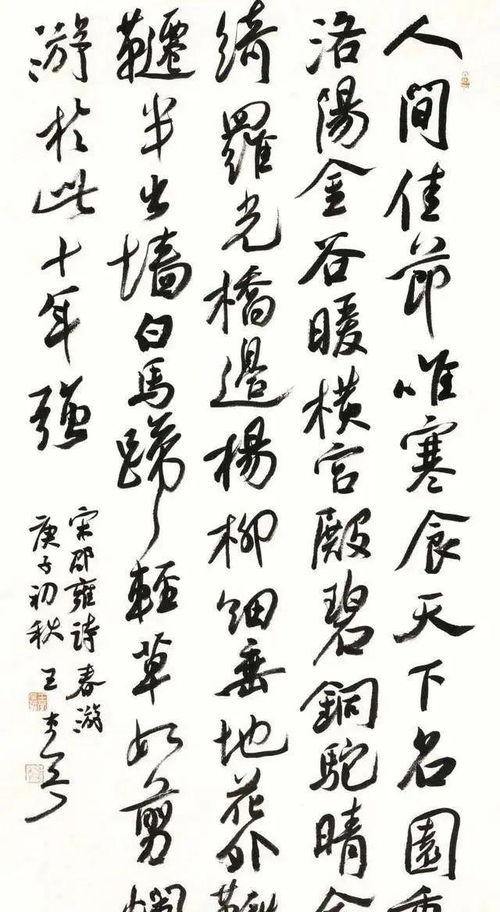 人間佳節唯寒食天下名園重
洛陽金谷暖橫宮殿碧銅駝晴合
綺羅光橋邊楊柳細垂地花外鞦
韆半出墙白馬蹄輕草如剪爛
游於此十年強
宋邵雍詩春游
庚子初秋 王